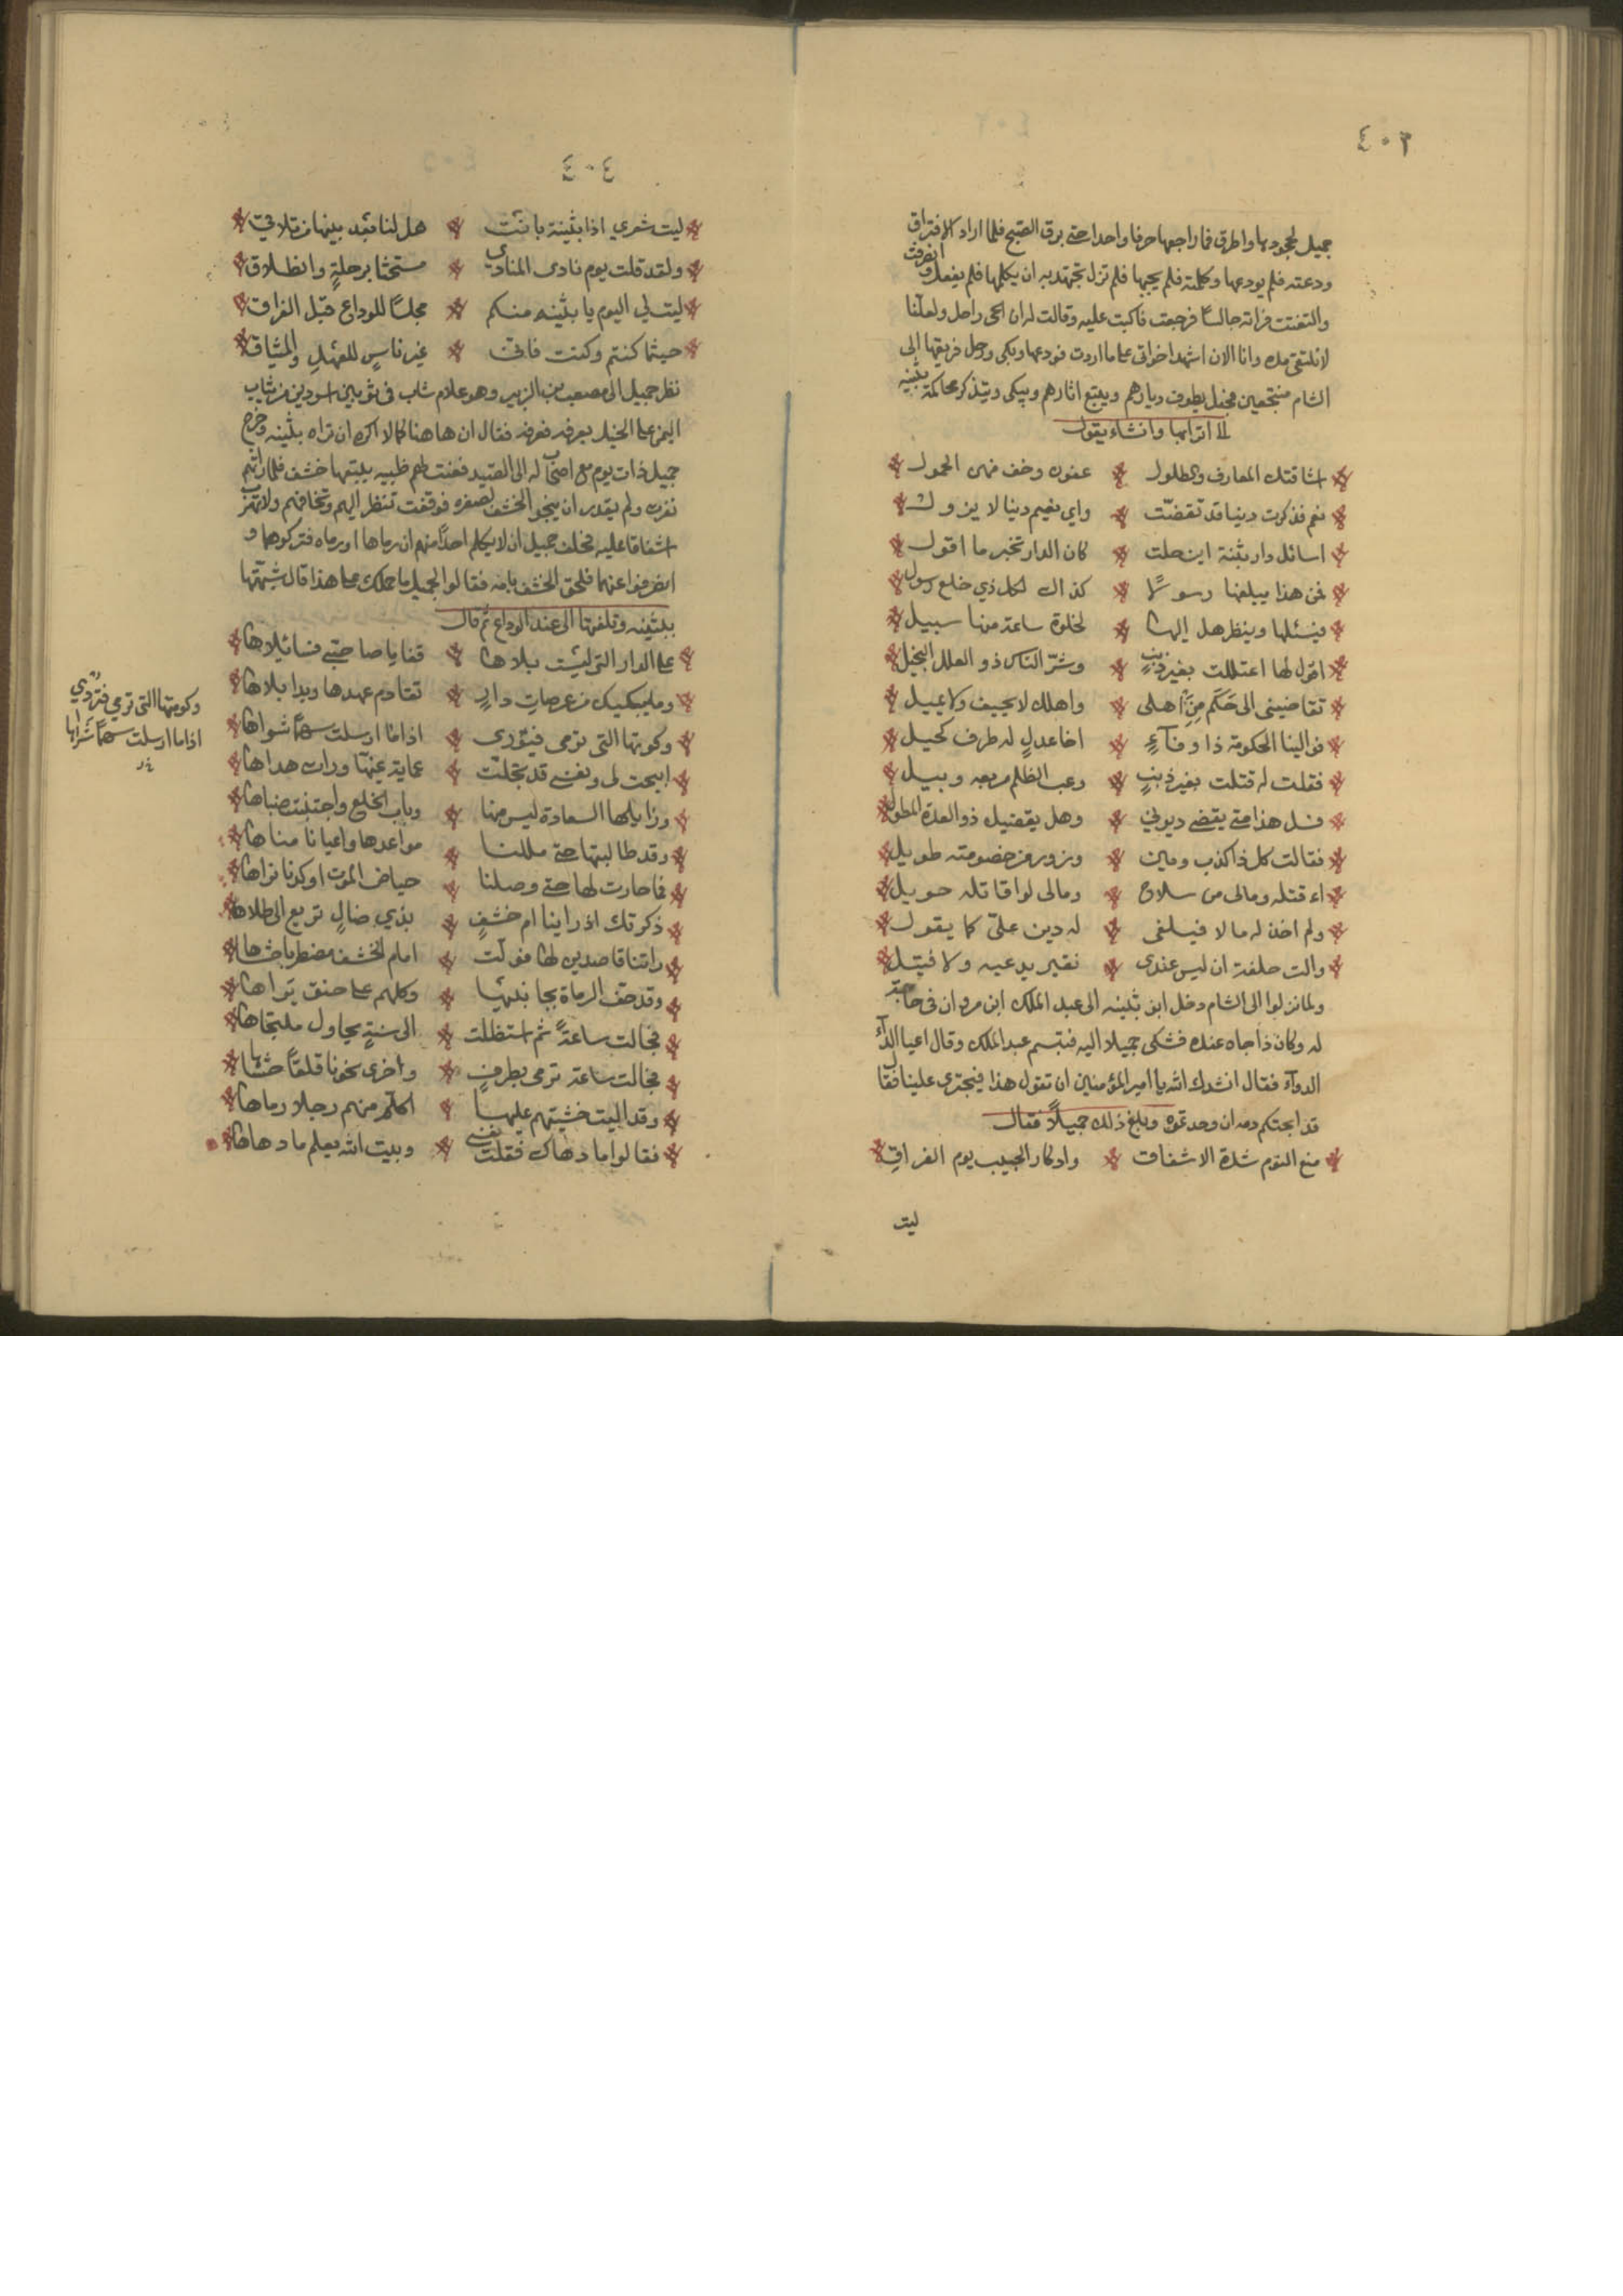 ٤٠٣
جميل لجحودها واطرق فما راجعها حرفا واحدا حتى برق الصبح فلما اراد الافتراق
ودعته فلم يودعها وكلمته فلم يجبها فلم تزل تجتهد به ان يكلمها فلم يفعل وانصرفت
والتفتت فراته جالسا فرجعت فاكبت عليه وقالت له ان الحي راحل ولعلنا
لا نلتقي وانا الان اشهد اخواتي على ما اردت فودعها وبكى ورحل فريقها الى
الشام منتجعين فجعل يطوف ديارهم ويتبع اثارهم ويبكي ويتذكر محاكمة بثينه
له اترابها وانشاء يقول
اشاقتك المعارف والطلول عفون وخف منهن الحمول
نعم فذكرت دنيا قد تقضّت واي نعيم دنيا لا يزول
اسائل دار بثنة اين حلت كان الدار تخبر ما اقول
فمن هذا يبلغها رسولًا كذاك لكل ذي خلع رسول
فيسئلها وينظر هل إليها لخلوة ساعة منها سبيل
اقول لها اعتللت بغير ذنبٍ وشرّ الناس ذو العلل البخيل
تقاضيني الى حَكَم مِنَ أهلي واهلك لا يحيف ولا يميل
فوالينا الحكومة ذا وفآءٍ اخا عدلٍ له طرف كحيل
فقلت له قتلت بغير ذنبٍ وغب الظلم مرتعه وبيل
فسل هذا متى يقضي ديوني وهل يقضيك ذو العدة المطول
فقالت كل ذا كذب ومين وزور من خصومته طويل
اء قتله ومالي من سلاح ومالي لو اقاتله حويل
ولم اخذ له مالا فيلفى له دين عليّ كما يقول
والت حلفة ان ليس عندي نقير يدعيه ولا فتيل
ولما نزلوا الى الشام دخل ابو بثينه الى عبد الملك ابن مروان في حاجة
له وكان ذا جاه عنده فشكى جميلا اليه فتبسم عبد الملك وقال اعيا الدآء
الدوآء فقال انشدك الله يا امير المؤمنين ان تقول هذا فيجترى علينا فقال
قد ابحتكم دمه ان وجدتموه وبلغ ذلك جميلًا فقال
منع النوم شدة الاشفاق وادكار الحبيب يوم الفراقِ
ليت
٤٠٤
ليت شعري اذا بثينة بانت هل لنا بعد بينها من تلاقي
ولقد قلت يوم نادى المنادي مستحثا برحلةٍ وانطلاق
ليت لي اليوم يا بثينه منكم مجلسًا للوداع قبل الفراق
حيثما كنتم وكنت فاني غير ناسٍ للعهدِ والميثاق
نظر جميل الى مصعب بن الزبير وهو غلام شاب في ثوبين اسودين من ثياب
اليمن على الخيل يعرفه فعرفه فقال ان هاهنا كما لا اكره ان تراه بثينه وخرج
جميل ذات يوم مع اصحاب له الى الصيد فعنت لهم ظبيه يتبعها خشف فلما راتهم
نفرت ولم يقدر ان ينجو الخشف لصغره فوقفت تنظر اليهم وتخافهم ولا تهرب
اشفاقا عليه فحلف جميل ان لا يكلم احدًا منهم ان رماها او رماه فتركوهما و
انصرفوا عنهما فلحق الخشف بامه فقالوا لجميل ما حملك على هذا قال شبهتها
ببثينه وتلفتها الى عند الوداع ثم قال
على الدار التي لبست بلاها قفا يا صاحبي فسائلاها
وما يبكيك من عرصات دارٍ تقادم عهدها وبدا بلاها
وكومتها التي ترمي فتوري اذا ما ارسلت سهمًا شواها
ابيحت لي ونفسي قد تجلت عماية غيّها ورات هداها
وزايلها السعادة ليس منها وباب الخلع واجتنبت صباها
وقد طالبتها حتى مللنا مواعدها واعيانا مناها
فما جارت لها حتى وصلنا حياض الموت او كدنا نراها
ذكرتك اذ راينا ام خشفٍ بذي ضالٍ تريع الى طلاها
راتنا قاصدين لها فولت امام الخشف مضطربا حشاها
وقد حف الرماة بجانبيها وكلهم على حنق يراها
فجالت ساعةً ثم استظلت الى سنةٍ يحاول ملتجاها
فجالت ساعة ترمي بطرفٍ واخرى نحونا قلقًا حشاها
وقد اليت خشيتهم عليها اكلم منهم رجلا رماها
فقالوا ما دهاك فقلت نفسي وبيت الله يعلم ما دهاها
وكومتها التي ترمي فتردي
اذا ما ارسلت سهمًا شراها